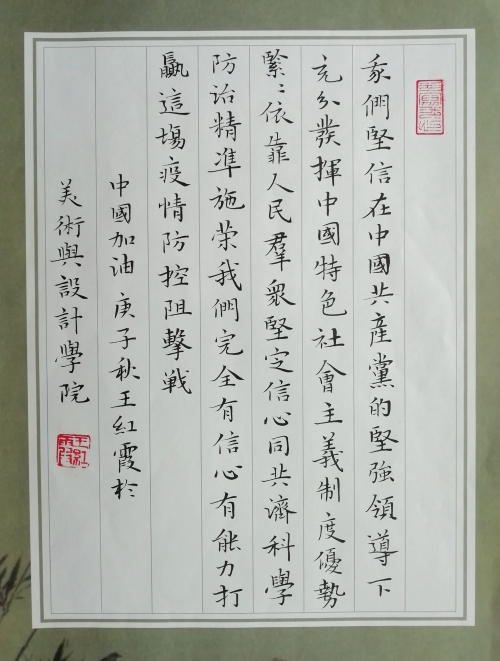 我們堅信在中國共產黨的堅強領導下
充分發揮中國特色社會主義制度優勢
緊緊依靠人民羣衆堅定信心同共濟科學
防治精準施策我們完全有信心有能力打
贏這場疫情防控阻擊戰
中國加油 庚子秋王紅霞於
美術與設計學院